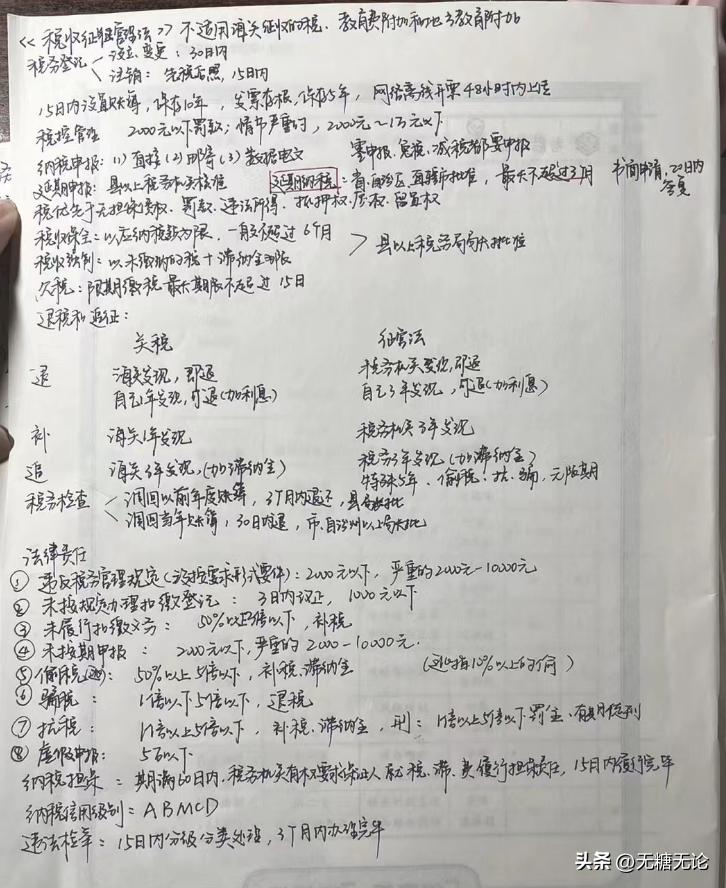 <<税收征收管理法>> 不适用海关征收的税、教育费附加和地方教育附加
税务登记 设立、变更：30日内
注销：先税后照，15日内
15日内设置账簿，保存10年，发票存根，保存5年，网络离线开票48小时内上传
税控管理 2000元以下罚款；情节严重的，2000元~1万元以下
纳税申报：(1) 直接 (2) 邮寄 (3) 数据电文 零申报、免税、减税都要申报
延期申报：县以上税务机关核准 延期纳税：省、自治区、直辖市批准，最长不超过3个月 书面申请，20日内答复
税优先于无担保债权、罚款、违法所得、抵押权、质权、留置权
税收保全：以应纳税款为限，一般不超过6个月
税收强制：以未缴纳的税+滞纳金为限 > 县以上税务局局长批准
欠税：限期缴税最长期限不超过15日
退税和追征：
关税 征管法
退 海关发现，即退 税务机关发现，即退
自己1年发现，可退(加利息) 自己3年发现，可退(加利息)
补 海关1年发现 税务机关3年发现
追 海关3年发现，(加滞纳金) 税务3年发现(加滞纳金)
特殊5年、偷税、抗、骗，无限期
税务检查 调回以前年度账簿，3个月内退还，县局长批
调回当年账簿，30日内退，市、自治州以上局长批
法律责任
① 违反税务管理规定(没按要求形式要件)：2000元以下，严重的2000元-10000元
② 未按规定办理扣缴登记：3日内改正，1000元以下
③ 未履行扣缴义务：50%以上3倍以下，补税
④ 未按期申报：2000元以下，严重的2000-10000元.
⑤ 偷税(逃)：50%以上5倍以下，补税、滞纳金 (逃指10%以上的)
⑥ 骗税：1倍以下5倍以下，退税
⑦ 抗税：1倍以上5倍以下，补税、滞纳金，刑：1倍以上5倍以下罚金、有期徒刑
⑧ 虚假申报：5万以下
纳税担保：期满60日内，税务机关有权要求保证人就税、滞、费履行担保责任，15日内履行完毕
纳税信用级别：ABMCD
违法检举：15日内分级分类处理，3个月内办理完毕
头条 @无糖无论